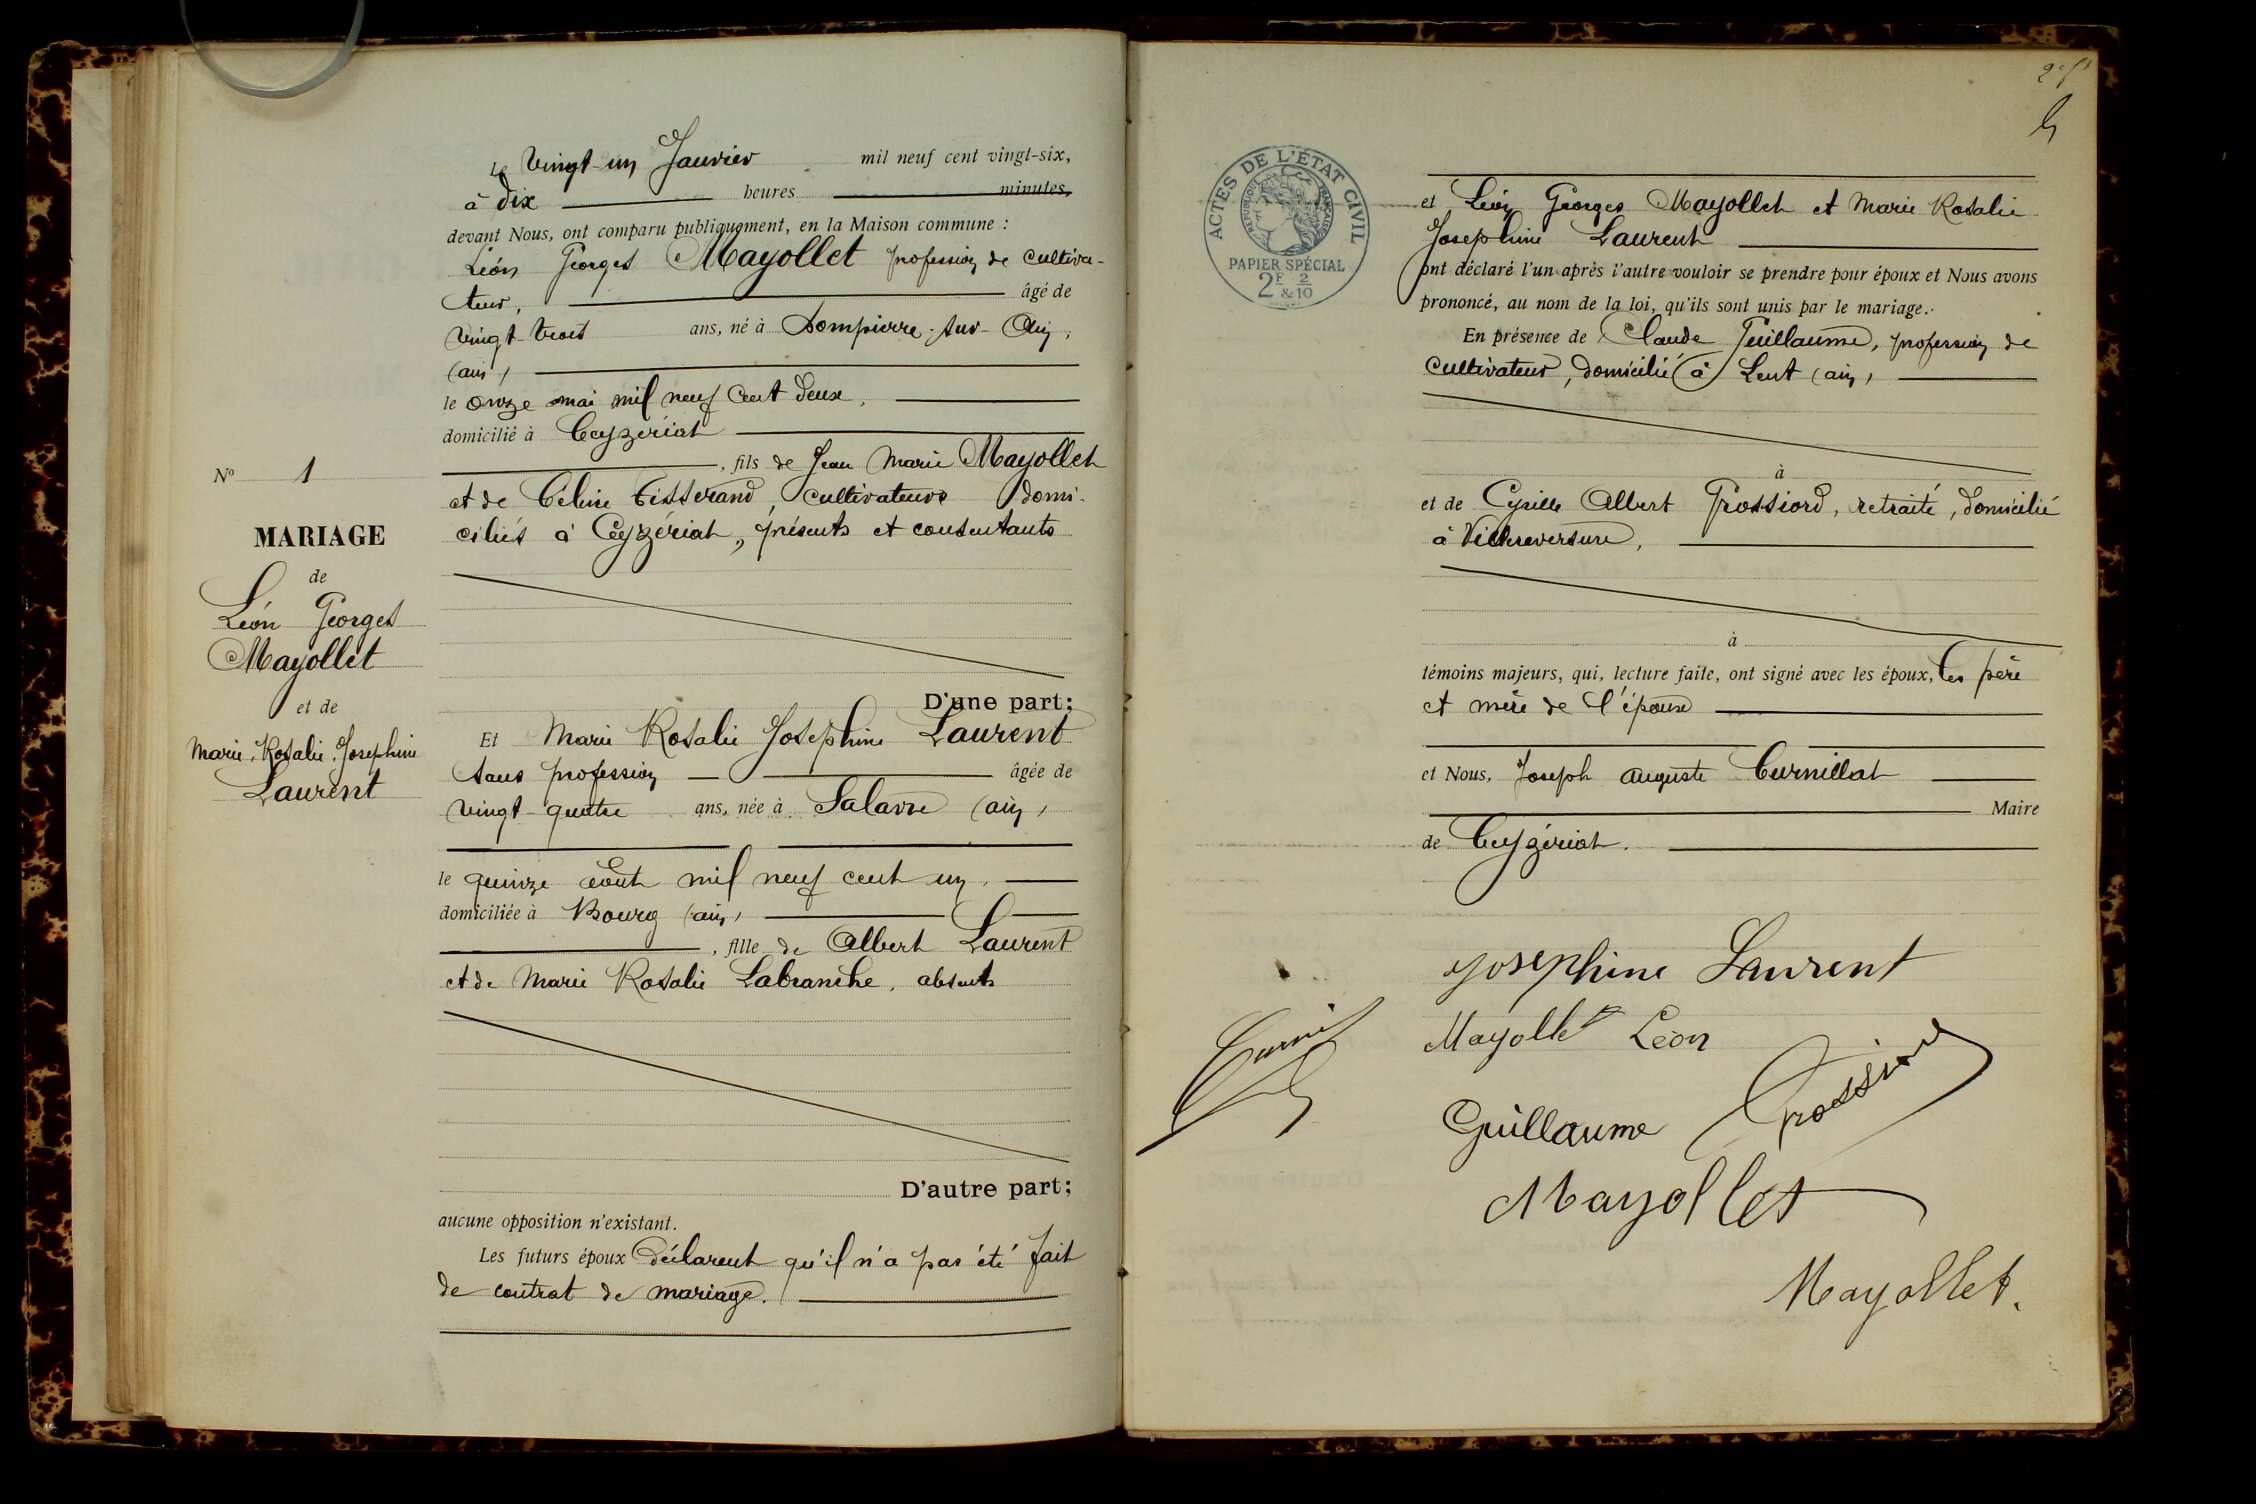 Le Vingt-un Janvier mil neuf cent vingt-six,
à Dix heures minutes,
devant Nous, ont comparu publiquement, en la Maison commune :
Léon Georges Mayollet profession de cultiva-
teur, âgé de
Vingt-trois ans, né à Dompierre-sur-Ain,
(ain)
le onze mai mil neuf cent deux,
domicilié à Ceyzériat
, fils de Jean Marie Mayollet
et de Céline Tisserand, cultivateurs domi-
ciliés à Ceyzériat, présents et consentants
D'une part;
Et Marie Rosalie Josephine Laurent
sans profession âgée de
vingt-quatre ans, née à Salavre (ain)
le quinze août mil neuf cent un,
domiciliée à Bourg (ain)
, fille de Albert Laurent
et de Marie Rosalie Labranche, absents
D'autre part;
aucune opposition n'existant.
Les futurs époux déclarent qu'il n'a pas été fait
de contrat de mariage.
No 1
MARIAGE
de
Léon Georges
Mayollet
et de
Marie, Rosalie, Josephine
Laurent
ACTES DE L'ÉTAT CIVIL
RÉPUBLIQUE FRANÇAISE
PAPIER SPÉCIAL
2F & 2/10
et Léon Georges Mayollet et Marie Rosalie
Josephine Laurent
ont déclaré l'un après l'autre vouloir se prendre pour époux et Nous avons
prononcé, au nom de la loi, qu'ils sont unis par le mariage.
En présence de Claude Guillaume, profession de
cultivateur, domicilié à Lent (ain)
à
et de Cyrille Albert Grossiord, retraité, domicilié
à Villereversure,
à
témoins majeurs, qui, lecture faite, ont signé avec les époux, les père
et mère de l'épouse
et Nous, Joseph Auguste Curnillat
Maire
de Ceyzériat.
Josephine Laurent
Mayollet Léon
Guillaume Grossiord
Mayollet
Mayollet.